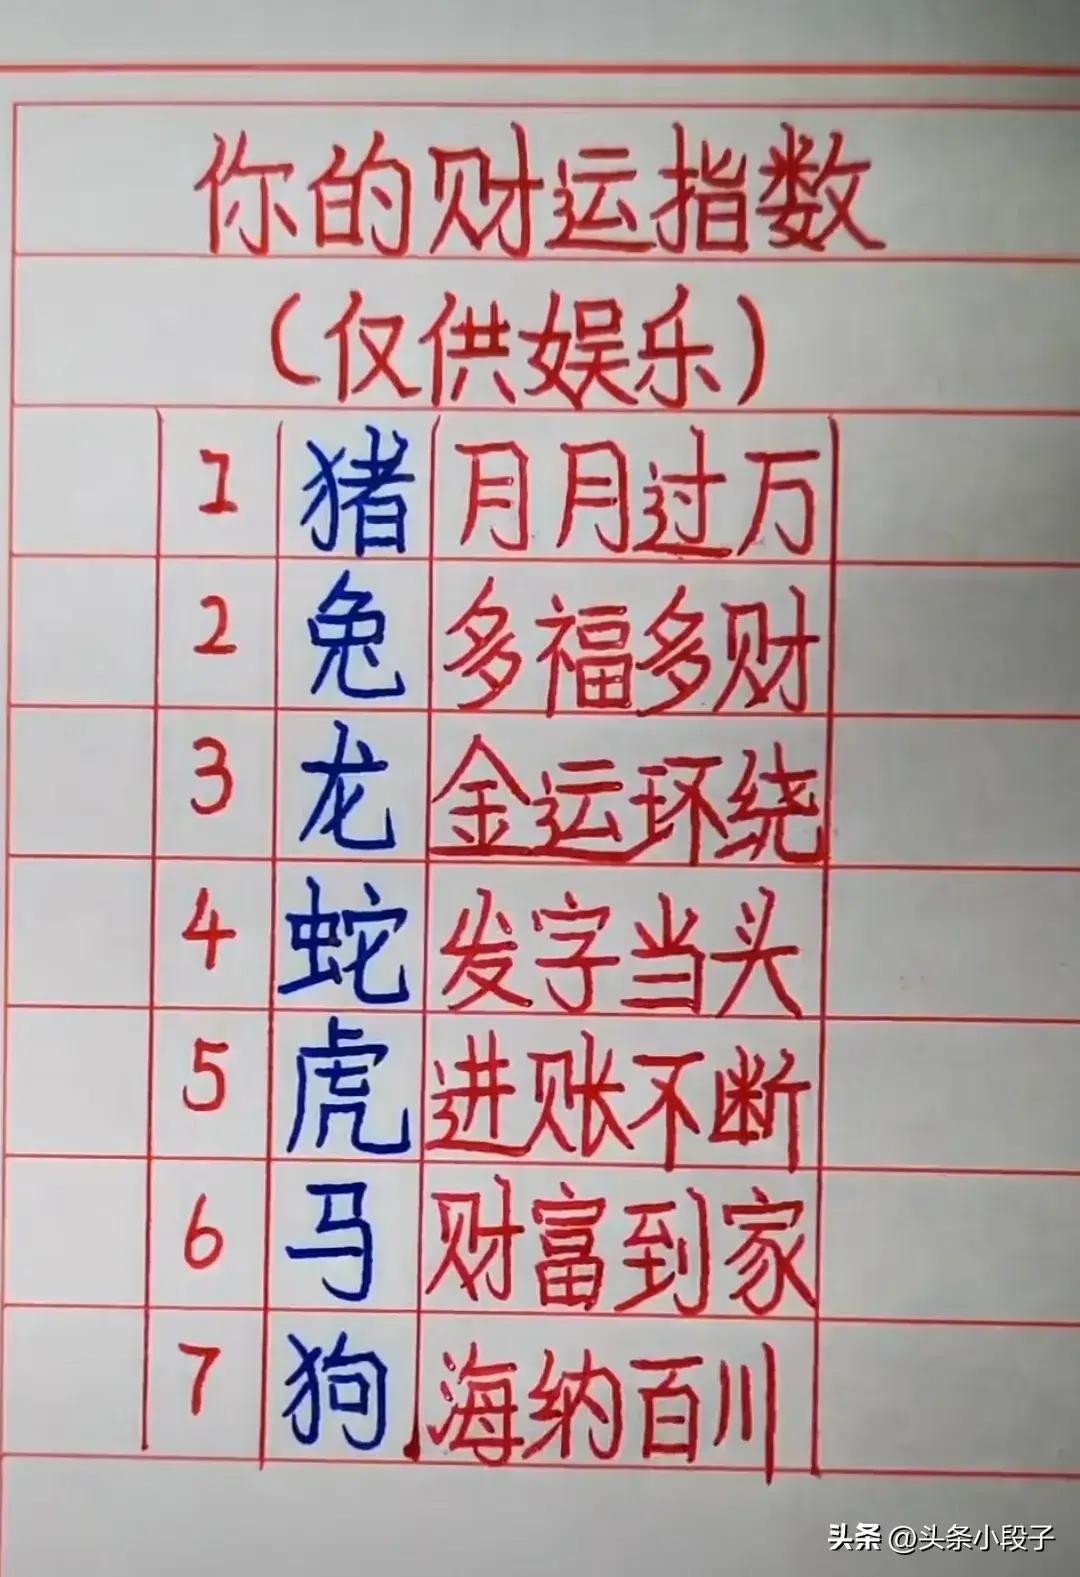 你的财运指数
（仅供娱乐）
1 猪 月月过万
2 兔 多福多财
3 龙 金运环绕
4 蛇 发字当头
5 虎 进账不断
6 马 财富到家
7 狗 海纳百川
头条 @头条小段子